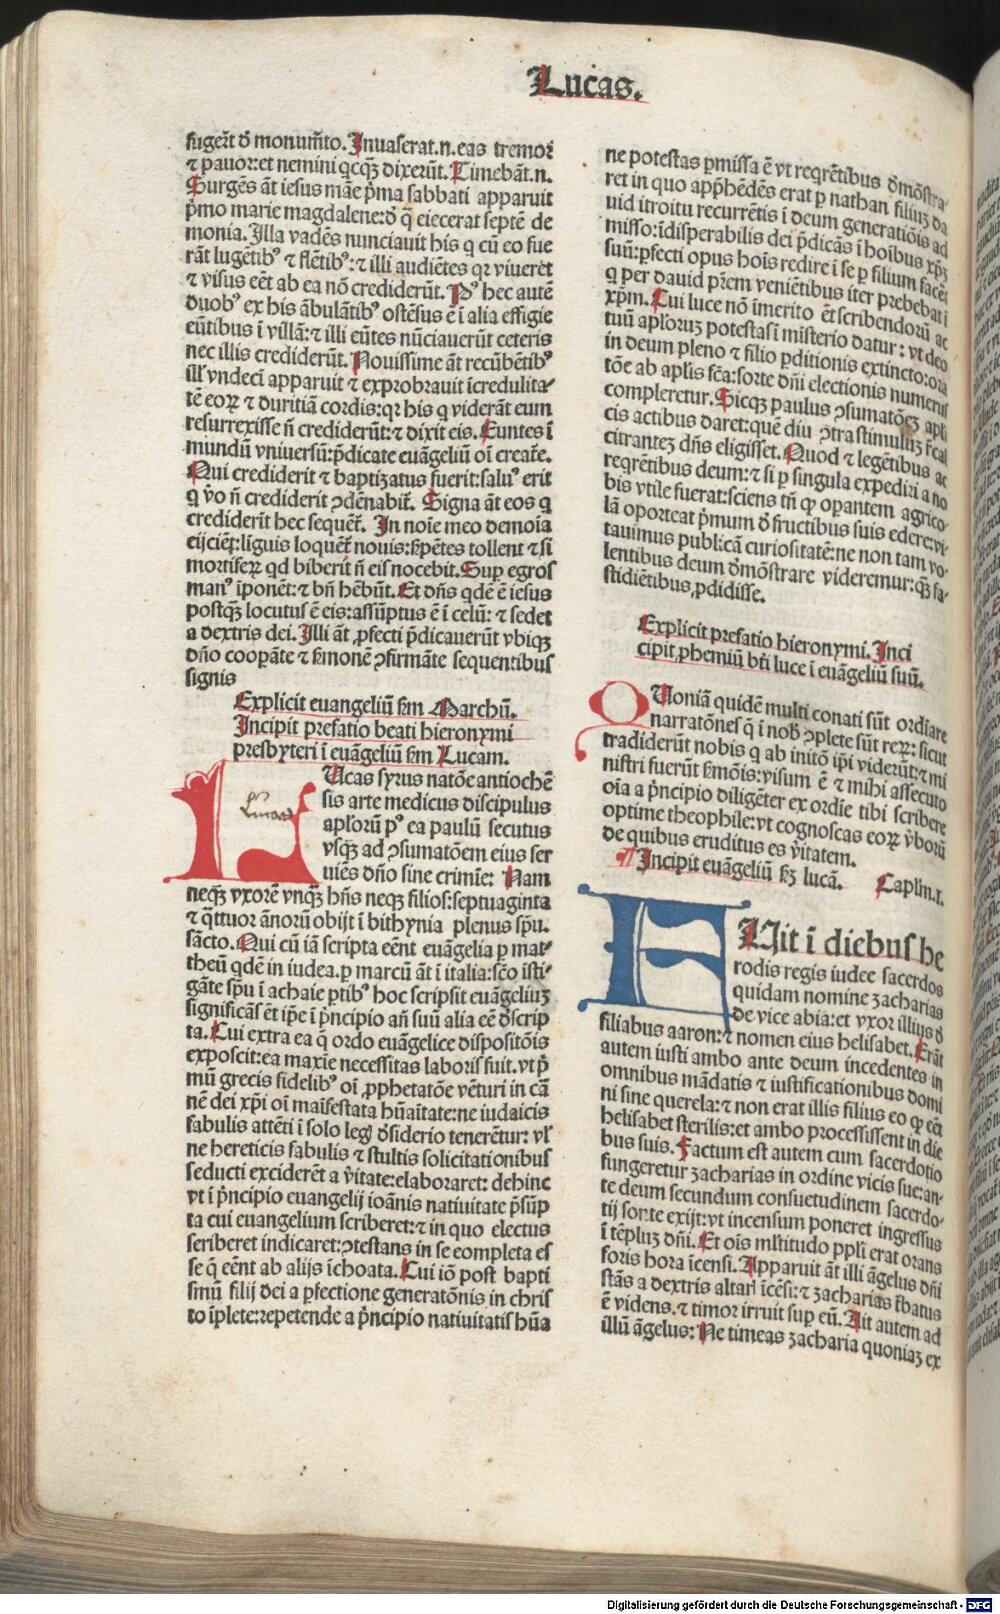 Lucas.
fugerūt d̄ monum̄to. Inuaserat .n. eas tremor
⁊ pauor: et nemini qcq̄ꝫ dixerūt. Timebāt .n.
Surgēs āt iesus māe p̄ma sabbati apparuit
p̄mo marie magdalene: d̄ q̄ eiecerat septē de
monia. Illa vadēs nunciauit his q cū eo fue
rāt lugētibꝰ ⁊ flētibꝰ: ⁊ illi audiētes qꝛ viueret
⁊ visus eēt ab ea nō crediderūt. Pꝰ hec autē
duobꝰ ex his ābulātibꝰ ostēsus ē ī alia effigie
eūtibus ī villā: ⁊ illi eūtes nūciauerūt ceteris
nec illis crediderūt. Nouissime āt recūbētibꝰ
ill' vndecī apparuit ⁊ exprobrauit īcredulita-
tē eoꝝ ⁊ duritiā cordis: qꝛ his q viderāt eum
resurrexisse n̄ crediderūt: ⁊ dixit eis. Euntes ī
mundū vniuersū: p̄dicate euāgeliū oī creat̄e.
Qui crediderit ⁊ baptizatus fuerit: saluꝰ erit
q v̄o n̄ crediderit ↄdēnabit̄. Signa āt eos q
crediderīt hec sequēt̄. In noīe meo demoīa
eijciēt: līguis loquēt̄ nouis: sꝑētes tollent ⁊ si
mortiferꝝ qd biberīt n̄ eis nocebit. Suꝑ egros
manꝰ īponēt: ⁊ bn̄ hēbūt. Et dn̄s qdē ē iesus
postq̄ꝫ locutus ē eis: assūptus ē ī celū: ⁊ sedet
a dextris dei. Illi āt ꝓfecti p̄dicauerūt vbiqꝫ
dn̄o cooꝑāte ⁊ ẜmonē ↄfirmāte sequentibus
signis
Explicit euangeliū ẜm Marchū.
Incipit prefatio beati hieronymi
presbyteri ī euāgeliū ẜm Lucam.
LUcas syrus natōe antiochē
Lucas
sis arte medicus discipulus
apl'orū pꝰ ea paulū secutus
vsqꝫ ad ↄsumatōem eius ser
uiēs dn̄o sine crimīe: Nam
neqꝫ vxorē vnq̄ꝫ hn̄s neqꝫ filios: septuaginta
⁊ q̄ttuor ānorū obijt ī bithynia plenus sp̄u
sācto. Qui cū iā scripta eēnt euāgelia ꝑ mat-
theū qdē in iudea. ꝑ marcū āt ī italia: sc̄o īsti-
gāte sp̄u ī achaie ꝑtibꝰ hoc scripsit euāgeliuꝫ
significās ēt ip̄e ī p̄ncipio an̄ suū alia eē d̄scrip
ta. Cui extra ea q̄ ordo euāgelice dispositōis
exposcit: ea maxīe necessitas laboris fuit. vt p̄
mū grecis fidelibꝰ oī ꝓphetatōe vēturī in cā
nē dei xp̄i oī maīfestata hūaītate: ne iudaicis
fabulis attēti ī solo leḡ d̄siderio tenerētur: vl'
ne hereticis fabulis ⁊ stultis solicitationibus
seducti exciderēt a v̄itate: elaboraret: dehinc
vt ī p̄ncipio euangelij ioānis natiuitate p̄sūp
ta cui euangelium scriberet: ⁊ in quo electus
scriberet indicaret: ↄtestans in se completa es
se q̄ eēnt ab alijs īchoata. Cui iō post bapti
smū filij dei a ꝑfectione generatōnis in chris
to īplete: repetende a p̄ncipio natiuitatis hūa
ne potestas ꝑmissa ē vt reqrētibus d̄mōstra
ret in quo app̄hēdēs erat ꝑ nathan filiuꝫ da
uid ītroitu recurrētis ī deum generatiōis ad
misso: īdisperabilis dei p̄dicās ī hoībus xp̄ꝫ
suū: ꝑfecti opus hoīs redire ī se ꝑ filium facēt
q per dauid p̄rem veniētibus iter prebebat ī
xp̄m. Cui luce nō īmerito ēt scribendorū ac
tuū apl'oruꝫ potestas ī mīsterio datur: vt deo
in deum pleno ⁊ filio ꝑditionis extincto: ora
tōe ab apl'is fc̄a: sorte dn̄i electionis numerus
compleretur. Sicqꝫ paulus ↄsumatōeꝫ apl'i
cis actibus daret: quē diu ↄtra stimuluꝫ r̄cal
citranteꝫ dn̄s eligisset. Quod ⁊ legētibus ac
reqrētibus deum: ⁊ si ꝑ singula expediri a no
bis vtile fuerat: sciens tn̄ ꝙ oꝑantem agrico
lā oporteat p̄mum d̄ fructibus suis edere: vi
tauimus publicā curiositatē: ne non tam vo-
lentibus deum d̄mōstrare videremur: q̄ꝫ fa-
stidiētibus ꝓdidisse.
Explicit prefatio hieronymi. Inci
cipit ꝓhemiū bt̄i luce ī euāgeliū suū.
QUoniā quidē multi conati sūt ordīare
narratōnes q̄ ī nobꝭ ↄplete sūt reꝝ: sicut
tradiderūt nobis q ab initō ip̄i viderūt: ⁊ mi
nistri fuerūt ẜmōis: visum ē ⁊ mihi assecuto
oīa a p̄ncipio diligēter ex ordīe tibi scribere
optime theophile: vt cognoscas eoꝝ v̄borū
de quibus eruditus es v̄itatem.
¶ Incipit euāgeliū ẜꝫ lucā. Caplm̄.I.
FUit ī diebus he
rodis regis iudee sacerdos
quidam nomine zacharias
de vice abia: et vxor illius d̄
filiabus aaron: ⁊ nomen eius helisabet. Erāt
autem iusti ambo ante deum incedentes in
omnibus mādatis ⁊ iustificationibus domi
ni sine querela: ⁊ non erat illis filius eo ꝙ eēt
helisabet sterilis: et ambo processissent in die
bus suis. Factum est autem cum sacerdotio
fungeretur zacharias in ordine vicis sue: an-
te deum secundum consuetudinem sacerdo-
tij sorte exijt: vt incensum poneret ingressus
ī tēpluꝫ dn̄i. Et oīs ml'titudo ppl'i erat orans
foris hora īcensi. Apparuit āt illi āgelus dn̄i
stās a dextris altarꝭ īcēsi: ⁊ zacharias t̄batus
ē videns. ⁊ timor irruit suꝑ eū. Ait autem ad
illū āgelus: Ne timeas zacharia quoniaꝫ ex
Digitalisierung gefördert durch die Deutsche Forschungsgemeinschaft - DFG